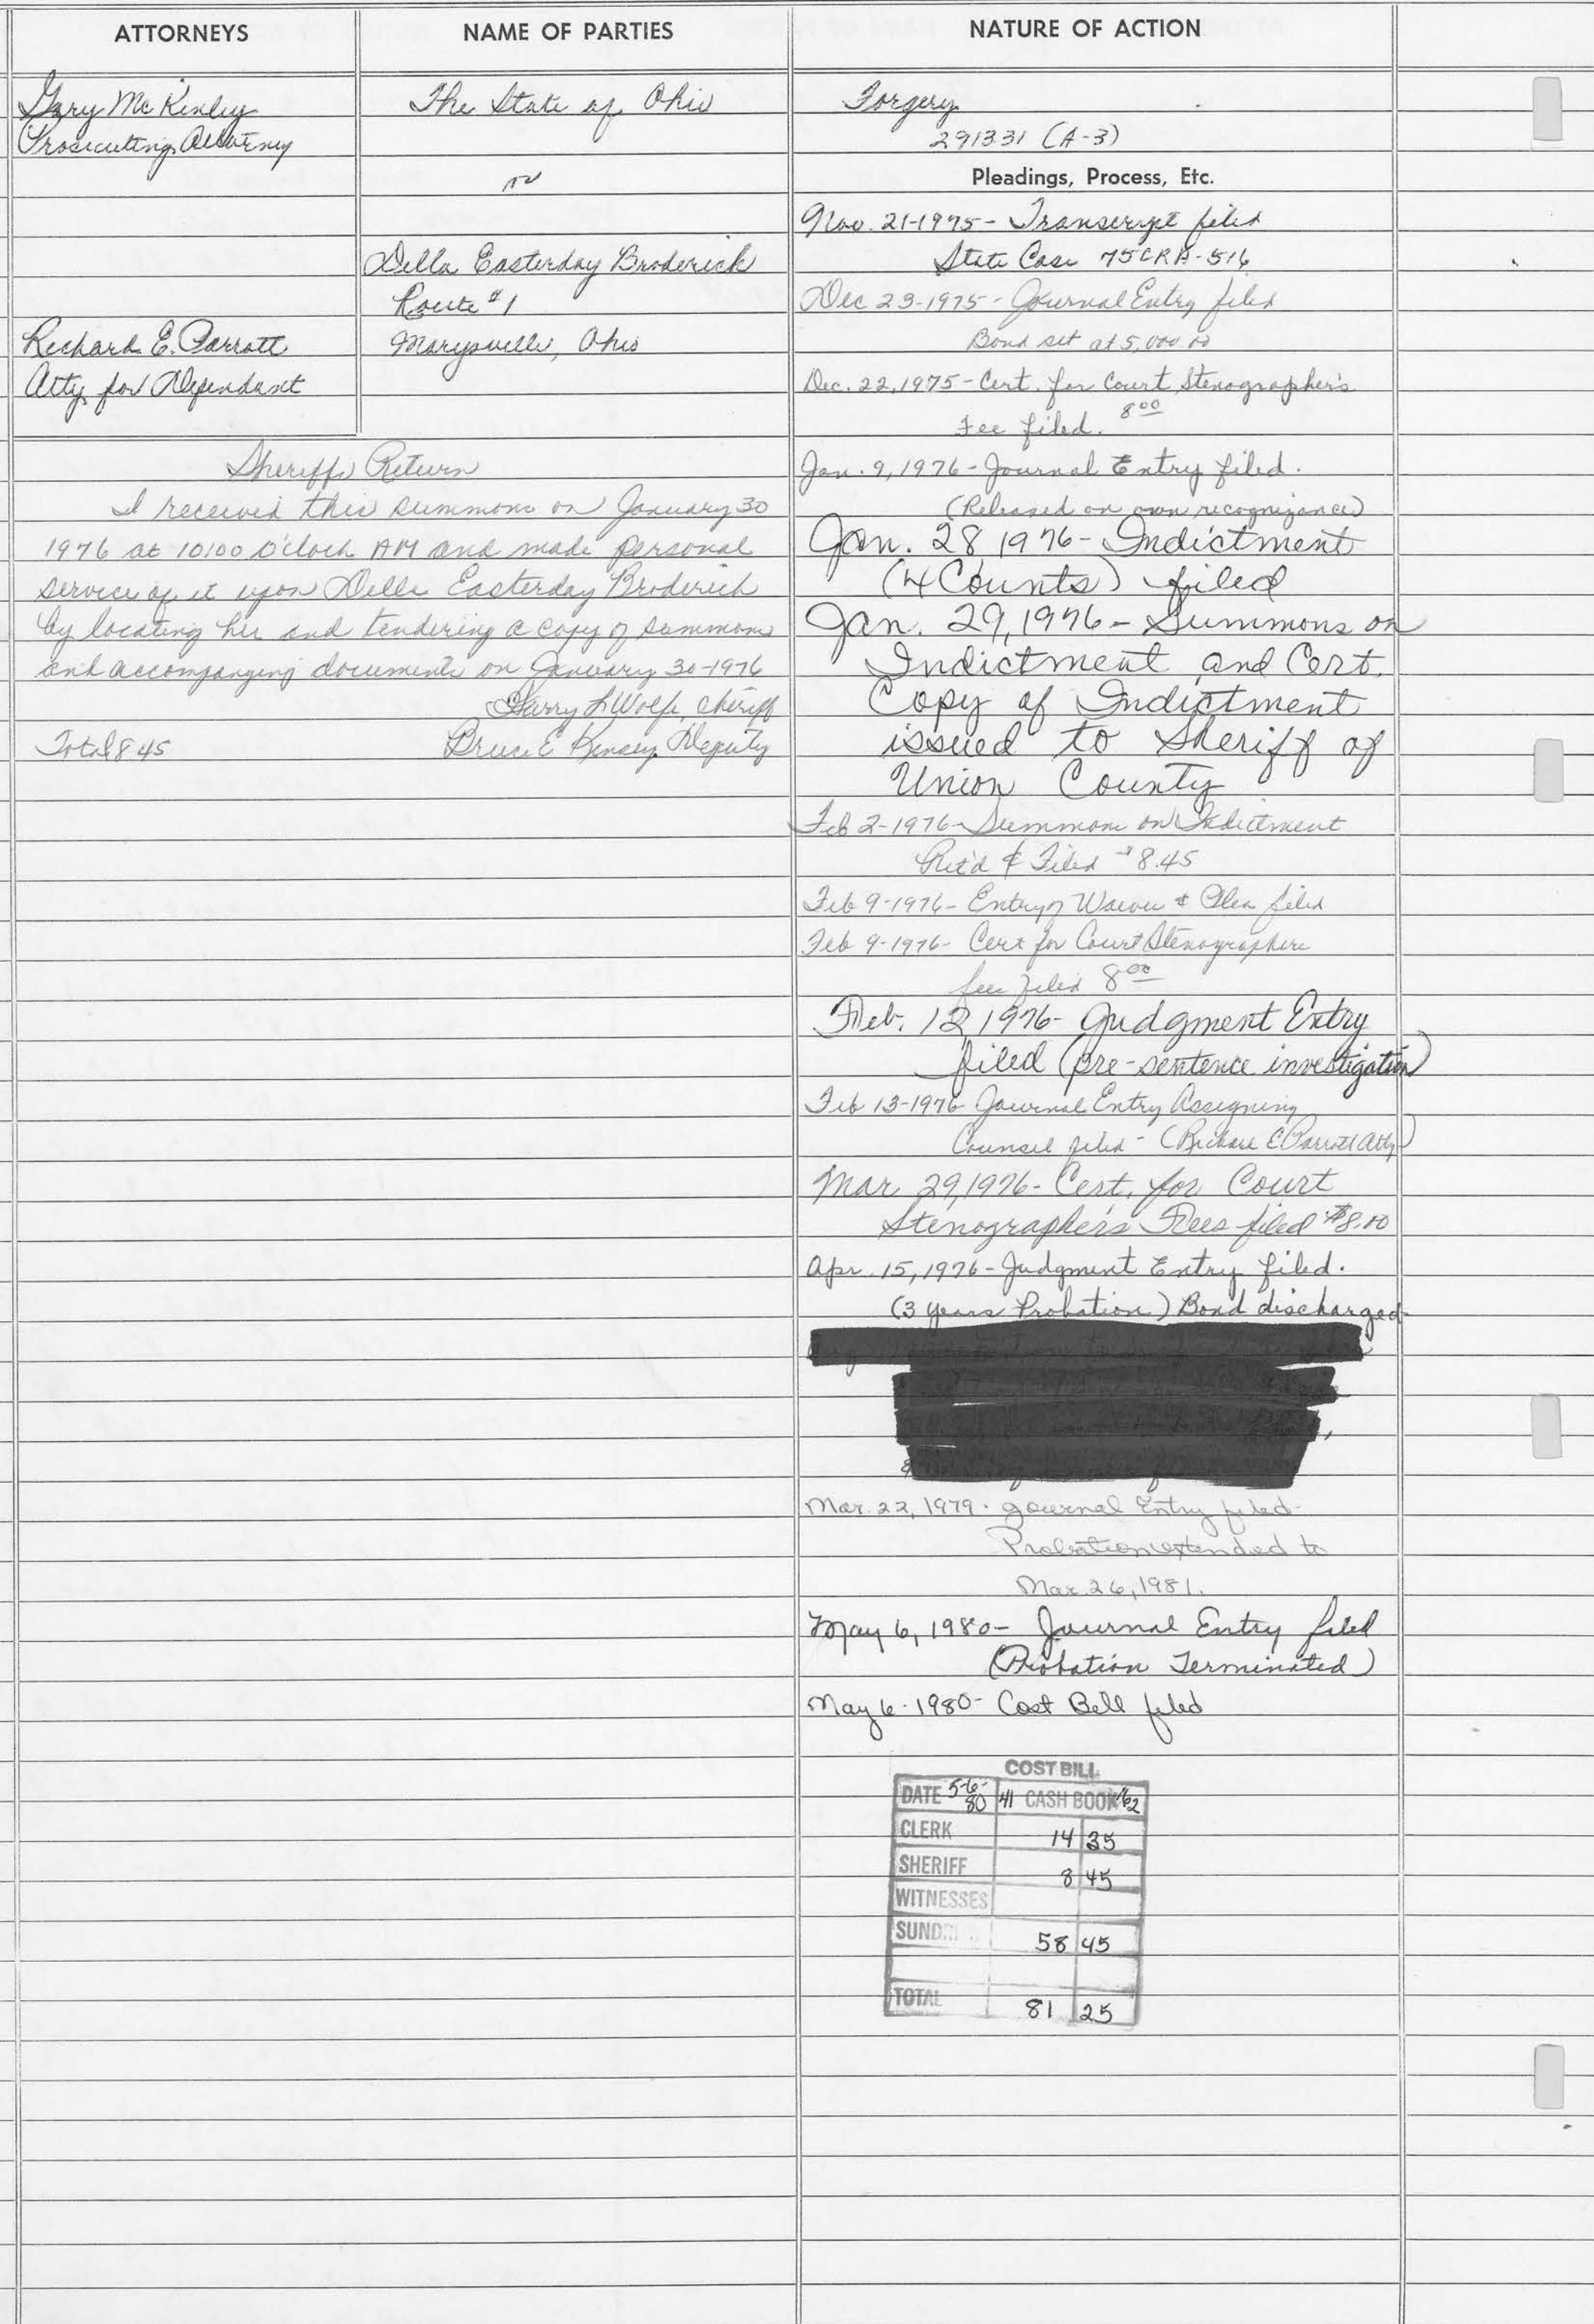 ATTORNEYS
NAME OF PARTIES
NATURE OF ACTION
Gary McKinley
Prosecuting Attorney
The State of Ohio
vs
Della Easterday Broderick
Route #1
Marysville, Ohio
Richard E. Parrott
Atty for Defendant
Sheriffs Return
I received this summons on January 30
1976 at 10:00 O'Clock AM and made personal
service of it upon Della Easterday Broderick
by locating her and tendering a copy of summons
and accompanying documents on January 30-1976
Harry L Wolfe, Sheriff
Total 8.45
Bruce E Kinsey Deputy
Forgery
2913.31 (A-3)
Pleadings, Process, Etc.
Nov. 21-1975- Transcript filed
State Case 75CRA-516
Dec 23-1975- Journal Entry filed
Bond set at 5,000.00
Dec. 22, 1975- Cert. for Court Stenographer's
Fee filed. 8 00
Jan. 9, 1976- Journal Entry filed.
(Released on own recognizance)
Jan. 28 1976- Indictment
(4 Counts) filed
Jan. 29, 1976- Summons on
Indictment and Cert.
Copy of Indictment
issued to Sheriff of
Union County
Feb 2-1976- Summons on Indictment
Ret'd & Filed $8.45
Feb 9-1976- Entry of Waiver & Plea filed
Feb 9-1976- Cert for Court Stenographers
fee filed 8 00
Feb. 12, 1976- Judgment Entry
filed (pre-sentence investigation)
Feb 13-1976- Journal Entry Assigning
Counsel filed- (Richard E Parrott Atty)
Mar 29, 1976- Cert. for Court
Stenographer's Fees filed $8.00
Apr. 15, 1976- Judgment Entry filed.
(3 years Probation) Bond discharged.
Mar. 22, 1979. Journal Entry filed-
Probation extended to
Mar. 26, 1981.
May 6, 1980- Journal Entry filed
(Probation Terminated)
May 6-1980- Cost Bill filed
COST BILL
DATE 5-6-80 41 CASH BOOK 162
CLERK 14 35
SHERIFF 8 45
WITNESSES
SUND 58 45
TOTAL 81 25